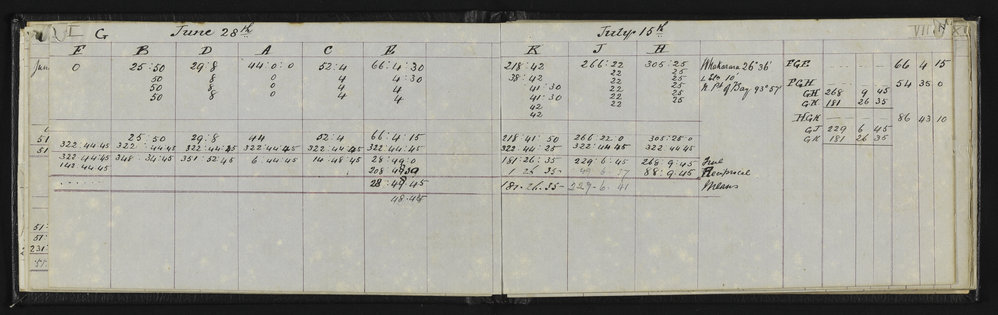 I G June 28th July 15th VII
F B D A C E K J H
0 25:50 29:8 44:0:0 52:4 66:4:30 218:42 266:22 305:25 Whakarara 26°36' FGE 66 4 15
50 8 0 4 4:30 38:42 22 25
50 8 0 4 4 41:30 22 25 N. Pt of Bay 93°57' FGH 54 35 0
50 8 0 4 4 41:30 22 25 GH 268 9 45
42 22 25 GK 181 26 35
42
HGK 86 43 10
25:50 29:8 44 52:4 66:4:15 218:41:50 266:22:0 305:25:0 GJ 229 6 45
322:44:45 322:44:45 322:44:45 322:44:45 322:44:45 322:44:45 322:44:45 322:44:45 GK 181 26 35
322:44:45 348:34:45 351:52:45 6:44:45 14:48:45 28:49:0 181:26:35 229:6:45 268:9:45 True
142:44:45 1:26:35 49:6: 88:9:45 Reciprocal
28:48:45 181-26-35 229-6-41 Means
48:45
51
51
51
51
231